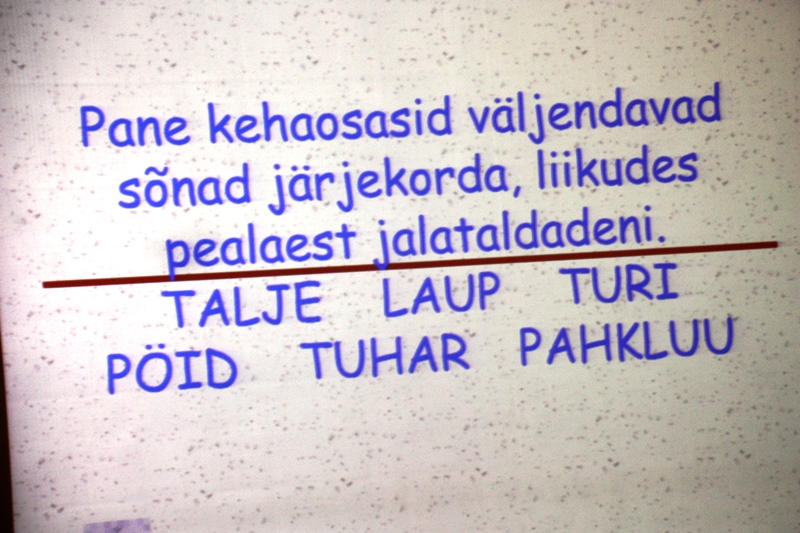 Pane kehaosasid väljendavad
sõnad järjekorda, liikudes
pealaest jalataldadeni.
TALJE LAUP TURI
PÖID TUHAR PAHKLUU